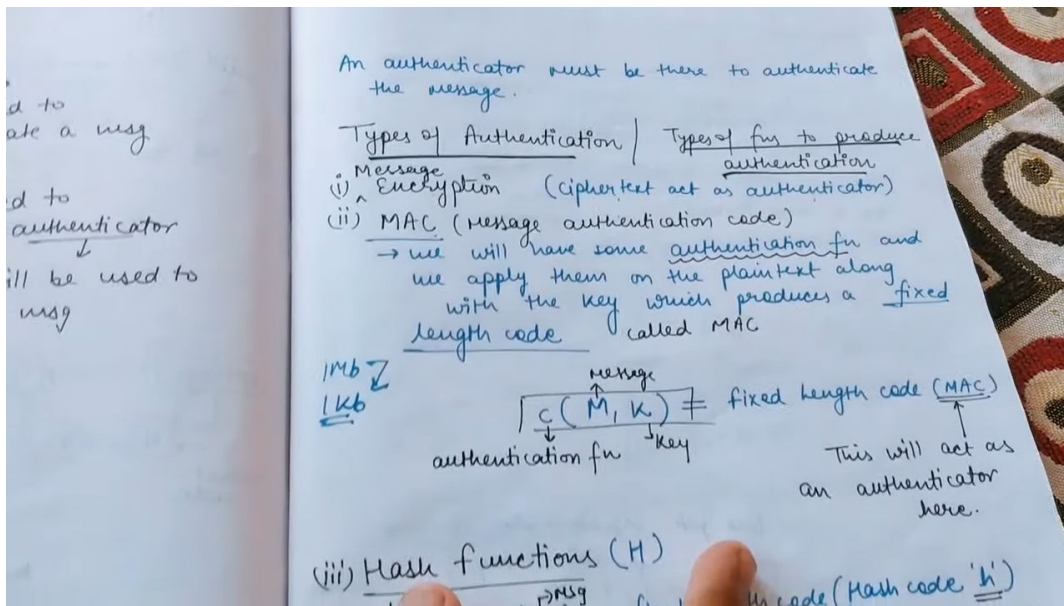 d to
ate a msg
d to
authenticator
↓
ill be used to
msg
An authenticator must be there to authenticate
the message.
Types of Authentication | Types of fns to produce
authentication
Message
(i) ^ Encryption (ciphertext act as authenticator)
(ii) MAC (Message authentication code)
→ we will have some authentication fn and
we apply them on the plaintext along
with the key which produces a fixed
length code called MAC
1Mb
1Kb
message
C (M, K) = fixed length code (MAC)
authentication fn Key
This will act as
an authenticator
here.
(iii) Hash functions (H)
→ Msg
th code (Hash code 'h')